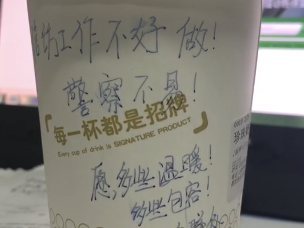 工作不好做!
警察不易!
每一杯都是招牌
Every cup of drink is SIGNATURE PRODUCT
愿多些温暖!
多些包容!